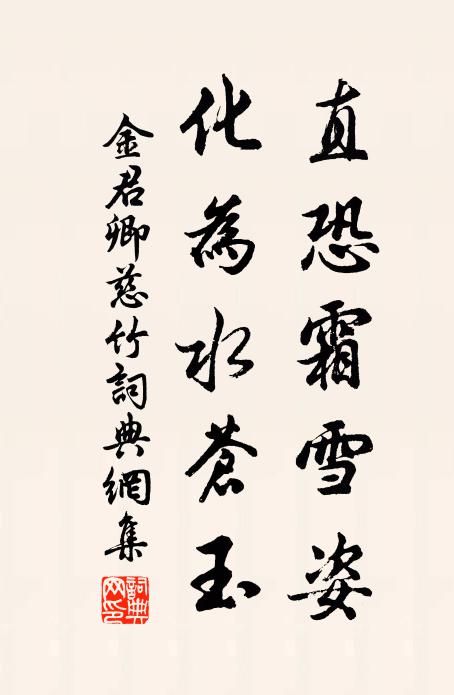 直恐霜雪姿
化為水蒼玉
金君卿慈竹詞典網集
詞典网印